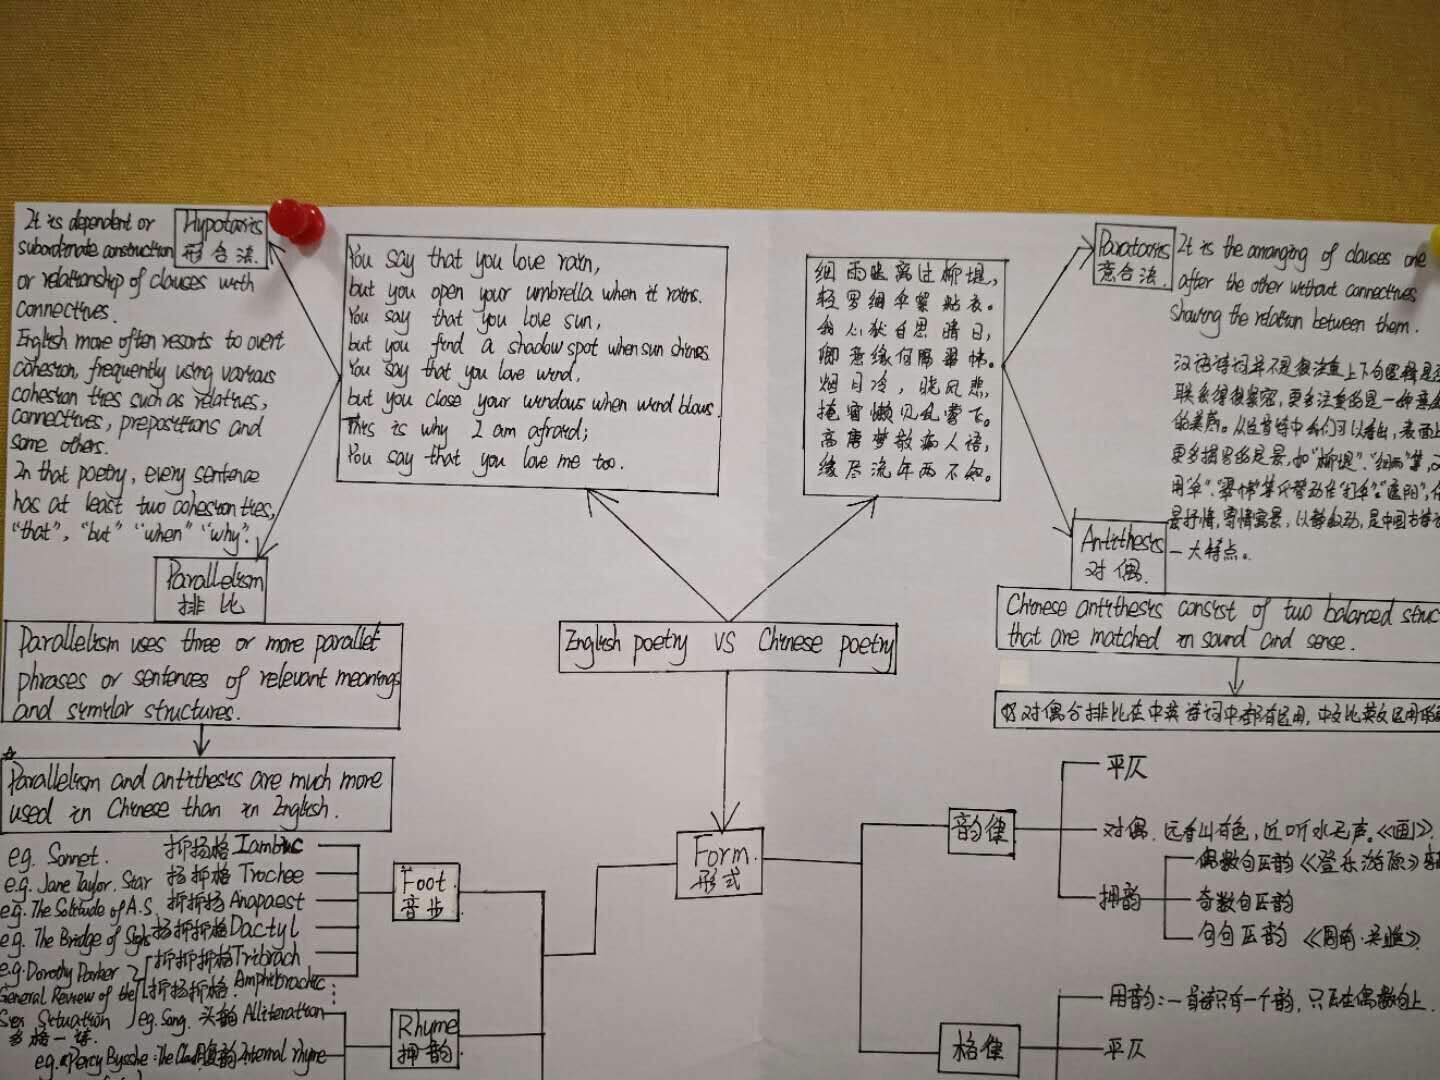 It is dependent or
subordinate construction
or relationship of clauses with
connectives.
English more often resorts to overt
cohesion, frequently using various
cohesion ties such as relatives,
connectives, prepositions and
some others.
In that poetry, every sentence
has at least two cohesion ties,
"that", "but" "when" "why".
Hypotaxis
形合法.
You say that you love rain,
but you open your umbrella when it rains.
You say that you love sun,
but you find a shadow spot when sun shines.
You say that you love wind,
but you close your windows when wind blows.
This is why I am afraid;
You say that you love me too.
细雨 离过柳堤,
轻罗细伞紧贴衣。
自思晴日,
卿意缘何 翠帏。
烟月冷, 晓风悲,
掩窗懒见乱雪飞。
高唐梦散痴人语,
缘尽流年两不知。
Parataxis
意合法.
It is the arranging of clauses one
after the other without connectives
showing the relation between them.
汉语诗词并不是很注重上下句逻辑是否
联系得很紧密, 更多注重的是一种意
的美感。从这首诗中我们可以看出, 表面上
更多描写的是景, 如"柳堤"、"细雨"等,
用"伞"、"翠帏"等代替动作"打伞"、"遮阳",
景抒情, 寄情寓景, 以静叙动, 是中国古诗
一大特点。
Antithesis
对偶.
Chinese antithesis consist of two balanced struc
that are matched in sound and sense.
对偶与排比在中英诗词中都有运用, 中文比英文运用的
Parallelism
排比
Parallelism uses three or more parallel
phrases or sentences of relevant meanings
and similar structures.
☆
Parallelism and antithesis are much more
used in Chinese than in English.
English poetry VS Chinese poetry
Form.
形式
Foot.
音步
eg. Sonnet. 抑扬格 Iambic
e.g. Jane Taylor. Star 扬抑格 Trochee
e.g. The Solitude of A.S. 抑抑扬 Anapaest
e.g. The Bridge of Sighs 扬抑抑格 Dactyl
e.g. Dorothy Parker 抑抑抑格 Tribrach
General Review of the 抑扬抑格. Amphibrachic
Sex Situation
多格一诗.
Rhyme
押韵
eg. Song. 头韵 Alliteration
e.g. Percy Bysshe: The Cloud 内韵 Internal rhyme
韵律
平仄
对偶. 远看山有色, 近听水无声.《画》.
押韵
偶数句压韵《登乐游原》
奇数句压韵
句句压韵 《周南·关雎》.
格律
用韵: 一首诗只有一个韵, 只压在偶数句上.
平仄